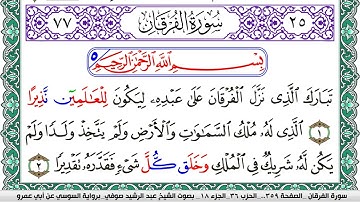 ٧٧ سُورَةُ الْفُرْقَانِ ٢٥
بِسْمِ اللَّهِ الرَّحْمَٰنِ الرَّحِيمِ
تَبَارَكَ الَّذِي نَزَّلَ الْفُرْقَانَ عَلَىٰ عَبْدِهِ لِيَكُونَ لِلْعَالَمِينَ نَذِيرًا
١ الَّذِي لَهُ مُلْكُ السَّمَاوَاتِ وَالْأَرْضِ وَلَمْ يَتَّخِذْ وَلَدًا وَلَمْ
يَكُن لَهُ شَرِيكٌ فِي الْمُلْكِ وَخَلَق كُلَّ شَيْءٍ فَقَدَّرَهُ تَقْدِيرًا ٢
سورة الفرقان .. الصفحة ٣٥٩.. الحزب ٣٦ .. الجزء ١٨ .. بصوت الشيخ عبد الرشيد صوفي برواية السوسي عن أبي عمرو